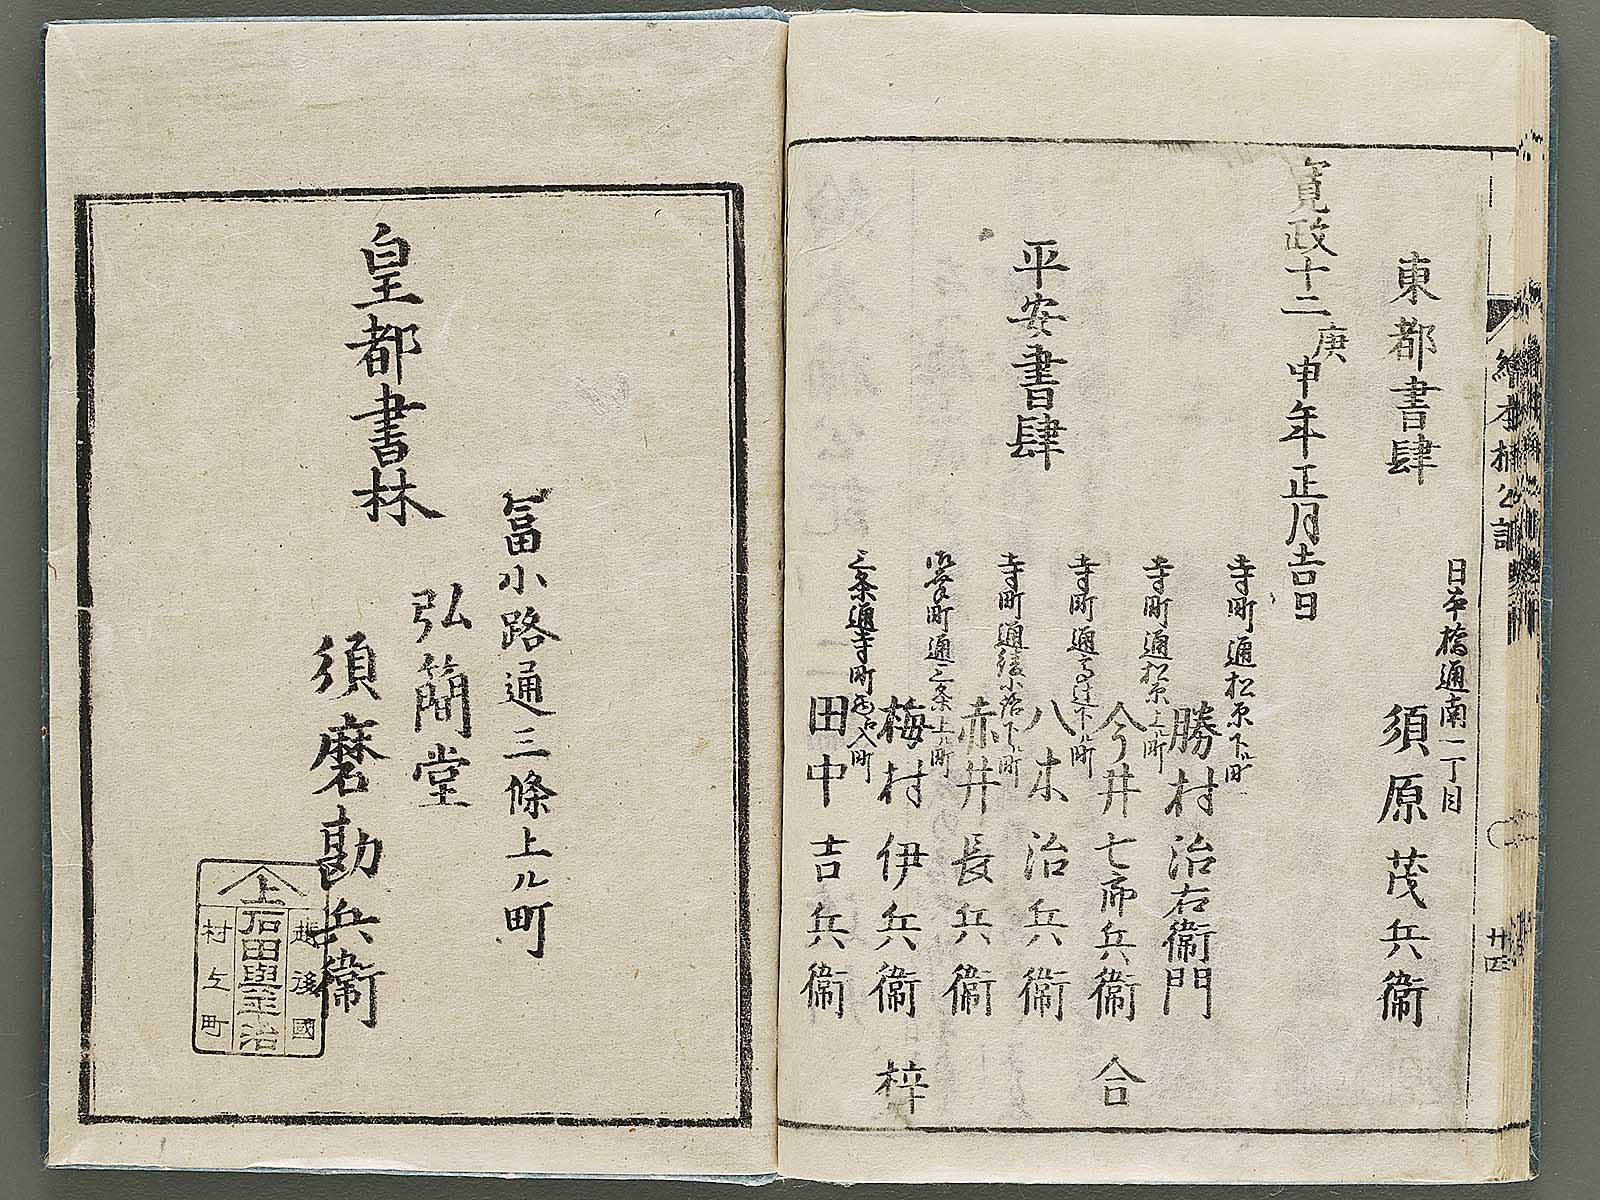 繪本楠公記
廿四
東都書肆
日本橋通南一丁目
須原茂兵衞
寛政十二庚申年正月吉日
平安書肆
寺町通松原下ル町
勝村治右衞門
寺町通松原上ル町
今井七郎兵衞
寺町通高辻下ル町
八木治兵衞
寺町通綾小路下ル町
赤井長兵衞
御幸町通三条上ル町
梅村伊兵衞
三条通寺町西へ入町
田中吉兵衞
合梓
冨小路通三條上ル町
皇都書林
弘簡堂
須磨勘兵衞
越後國
上
石田與三治
村上町